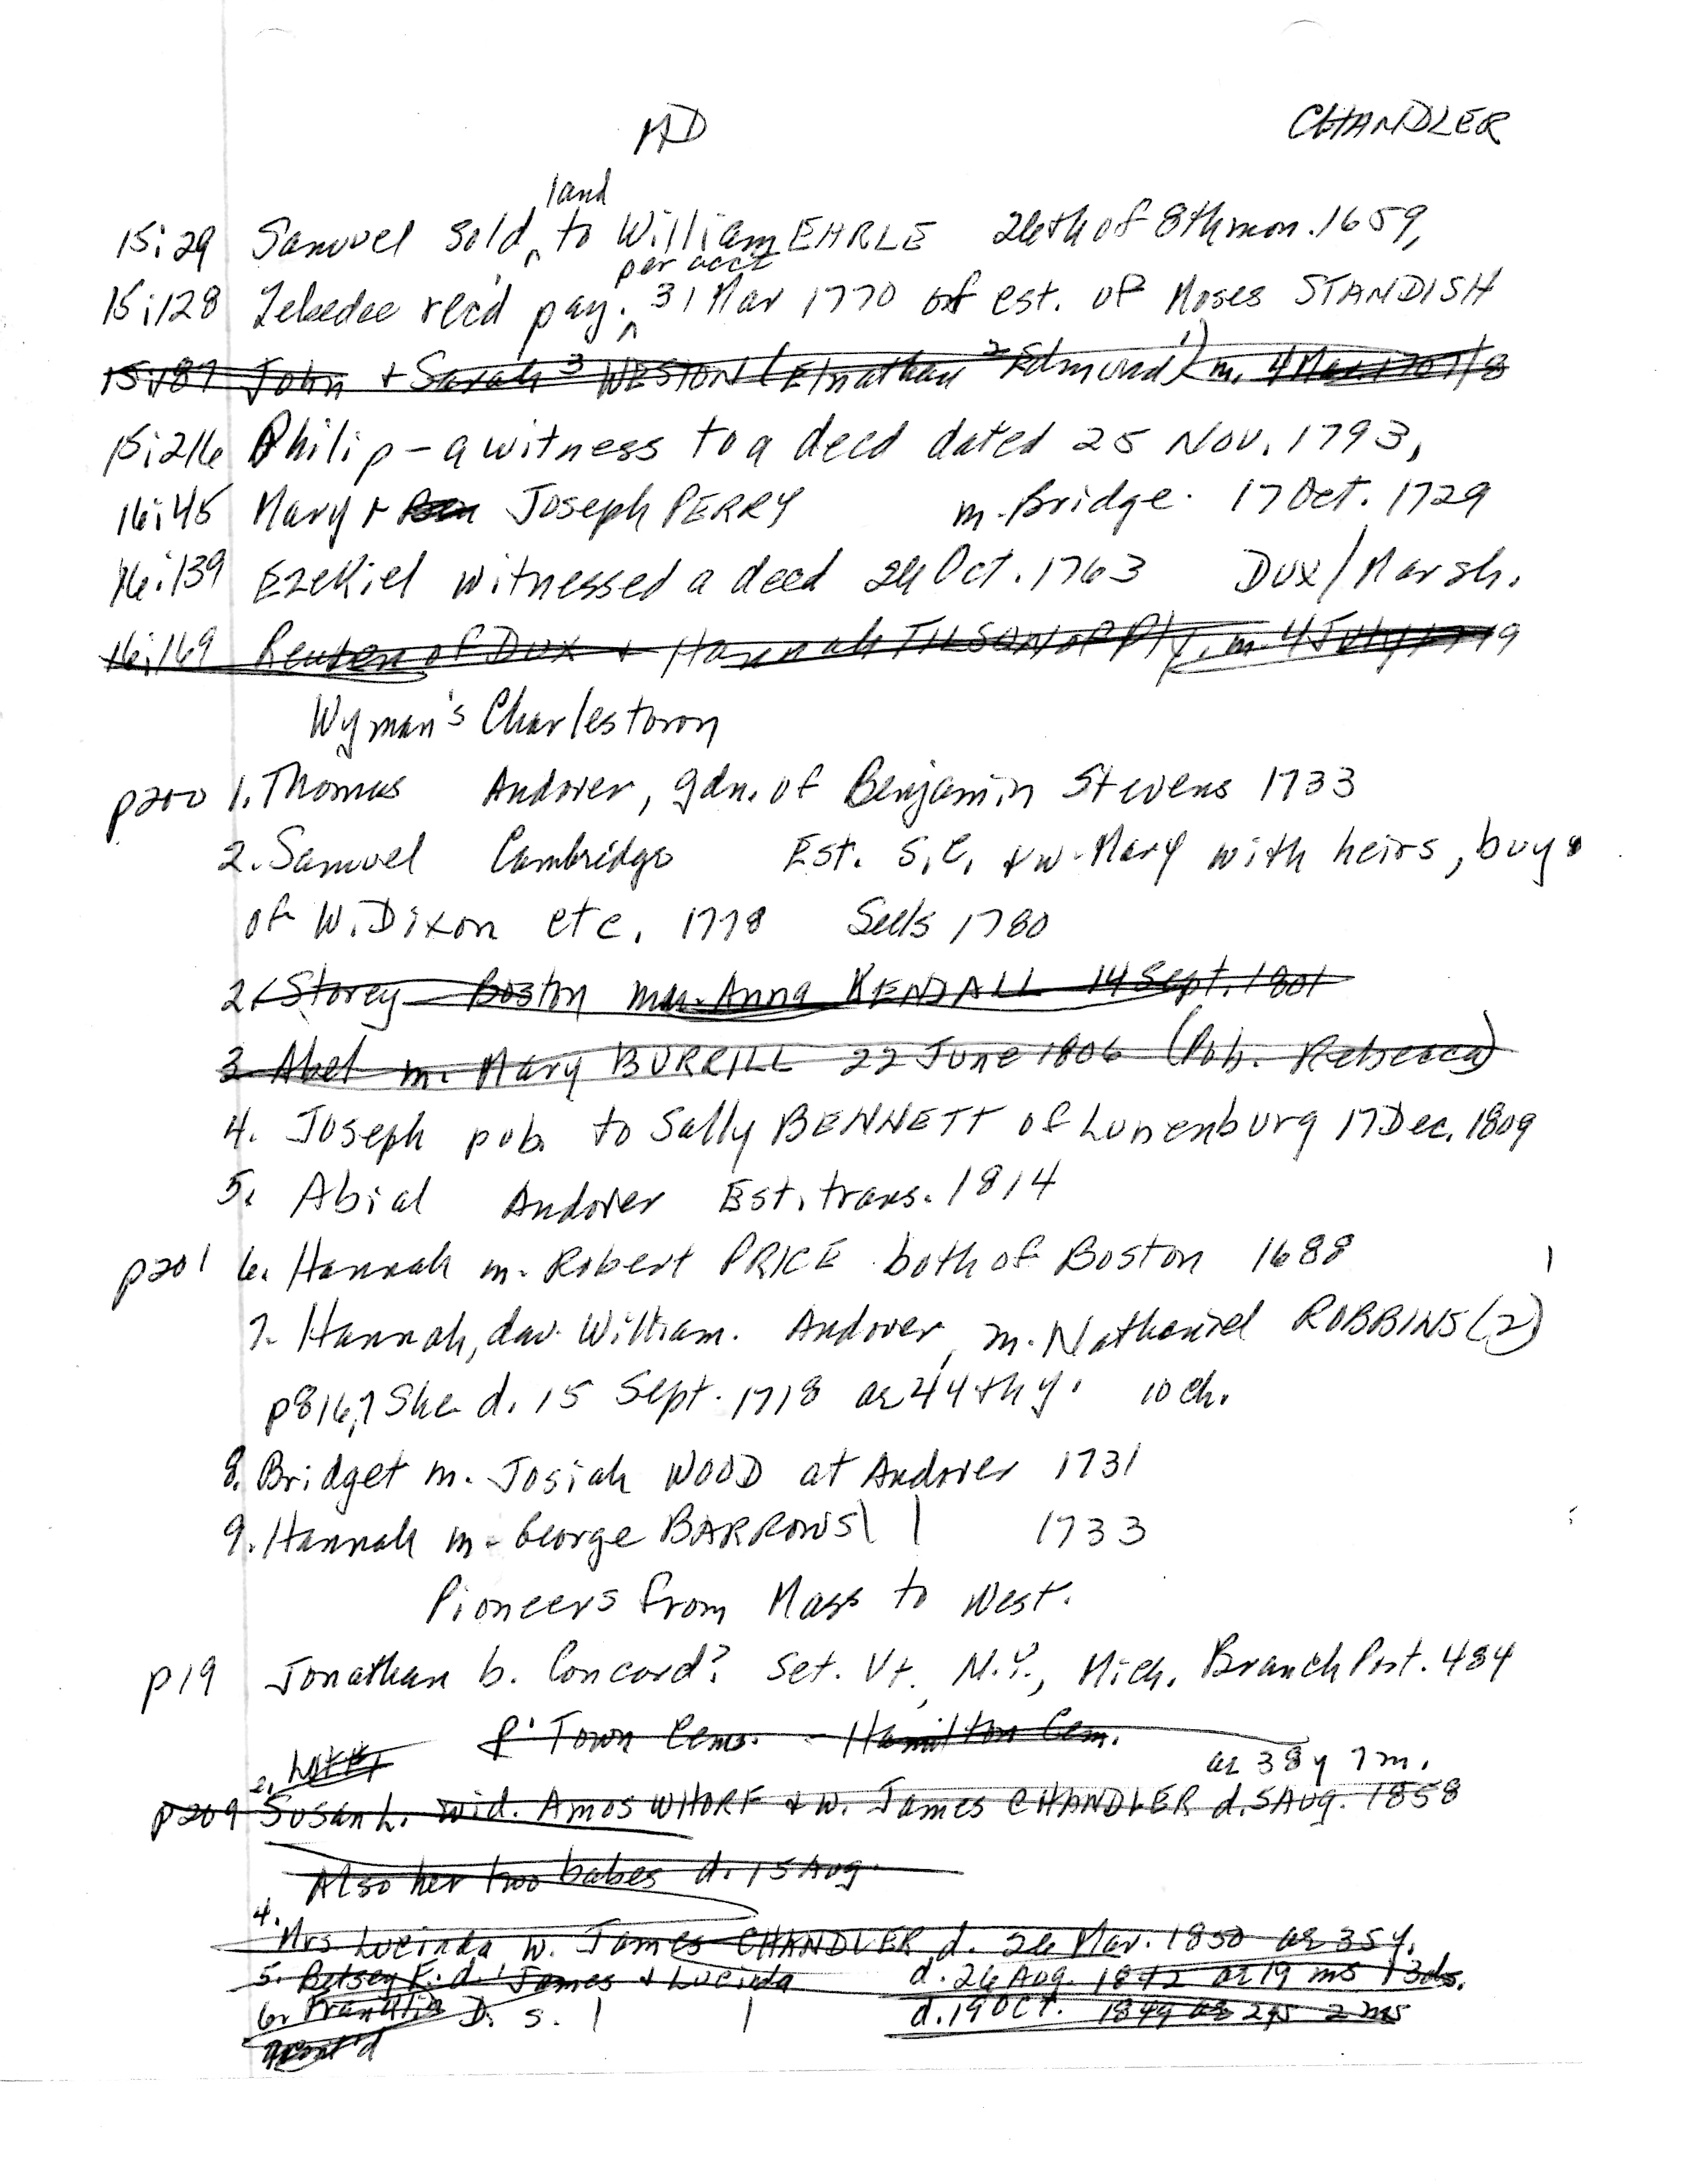 MD CHANDLER
land
15:29 Samuel sold ^ to William EARLE 26th of 8th mon. 1659,
per acct
15:128 Zebedee rec'd pay. ^ 31 Mar 1770 of est. of Moses STANDISH
15:187 John + Sarah³ WESTON (Elnathan² Edmund¹) m. 4 Mar. 1707/8
15:216 Philip - a witness to a deed dated 25 Nov. 1793,
16:45 Mary + Ben Joseph PERRY m. Bridge. 17 Oct. 1729
16:139 Ezekiel witnessed a deed 26 Oct. 1763 Dux/Marsh.
16:169 Reuben of Dux + Hannah TILSON of Ply, m. 4 July 1749
Wyman's Charlestown
p200 1. Thomas Andover, gdn. of Benjamin Stevens 1733
2. Samuel Cambridge Est. S.C. + w. Mary with heirs, buys
of W. Dixon etc. 1778 Sells 1780
2. Storey Boston m. Anna KENDALL 14 Sept. 1801
3. Abel m. Mary BURRILL 22 June 1806 (Pub. Rebecca)
4. Joseph pub. to Sally BENNETT of Lunenburg 17 Dec. 1809
5. Abial Andover Est. trans. 1814
p201 6. Hannah m. Robert PRICE both of Boston 1688
7. Hannah, dau. William. Andover, m. Nathaniel ROBBINS (2)
p816,7 She d. 15 Sept. 1718 ae 44th y. 10 ch.
8. Bridget m. Josiah WOOD at Andover 1731
9. Hannah m. George BARROWS | | 1733
Pioneers from Mass to West.
p19 Jonathan b. Concord? Set. Vt., N.Y., Mich. Branch Port. 484
P' Town Cems. - Hamilton Cem.
ae 38 y 7 m.
p209 2. Susan L. wid. Amos WHORF + w. James CHANDLER d. 5 Aug. 1858
Also her two babes d. 15 Aug.
4. Mrs Lucinda w. James CHANDLER d. 26 Mar. 1850 ae 35 y.
5. Betsey F. d. James + Lucinda d. 26 Aug. 1842 ae 19 ms 13 ds.
6. Franklin D. s. | | d. 19 Oct. 1849 ae 2 ys 2 ms